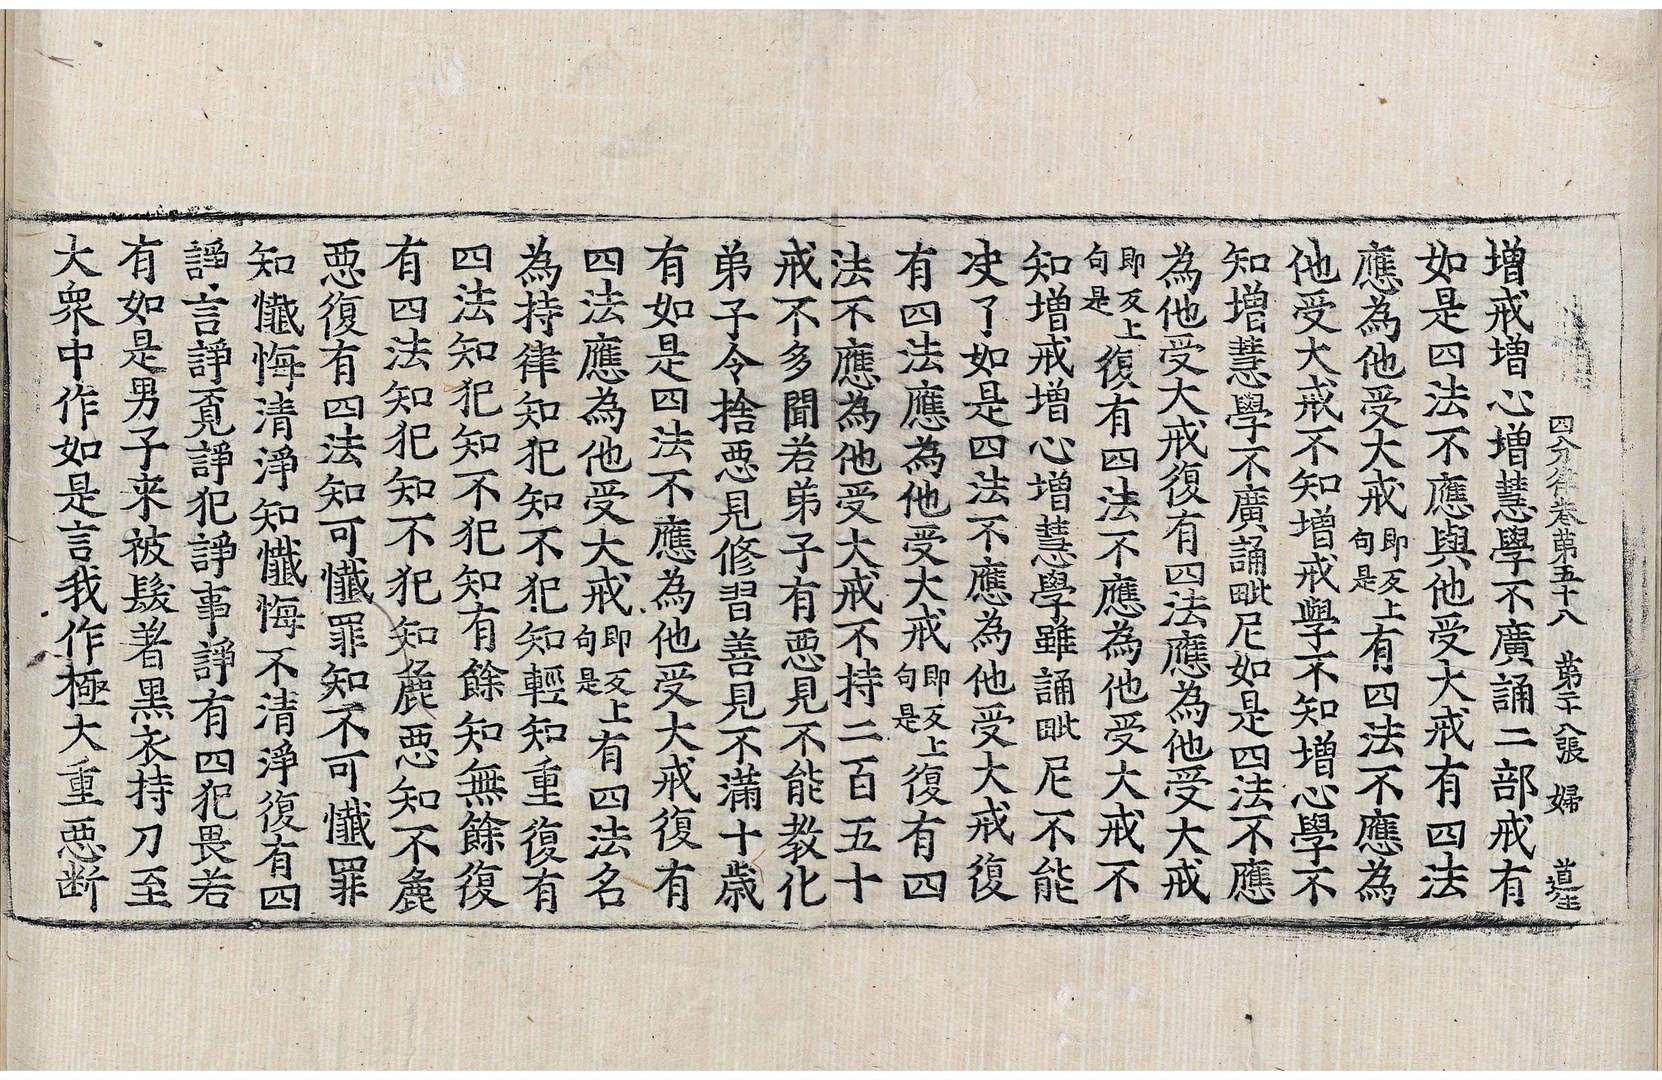 四分律卷第五十八　第二十八張　婦
增戒增心增慧學不廣誦二部戒有
如是四法不應與他受大戒有四法
應為他受大戒即反上句是有四法不應為
他受大戒不知增戒學不知增心學不
知增慧學不廣誦毗尼如是四法不應
為他受大戒復有四法應為他受大戒
即反上句是復有四法不應為他受大戒不
知增戒增心增慧學雖誦毗尼不能
决了如是四法不應為他受大戒復
有四法應為他受大戒即反上句是復有四
法不應為他受大戒不持二百五十
戒不多聞若弟子有惡見不能教化
弟子令捨惡見修習善見不滿十歲
有如是四法不應為他受大戒復有
四法應為他受大戒即反上句是有四法名
為持律知犯知不犯知輕知重復有
四法知犯知不犯知有餘知無餘復
有四法知犯知不犯知麁惡知不麁
惡復有四法知可懺罪知不可懺罪
知懺悔清淨知懺悔不清淨復有四
諍言諍覓諍犯諍事諍有四犯畏若
有如是男子来被髮著黑衣持刀至
大衆中作如是言我作極大重惡断